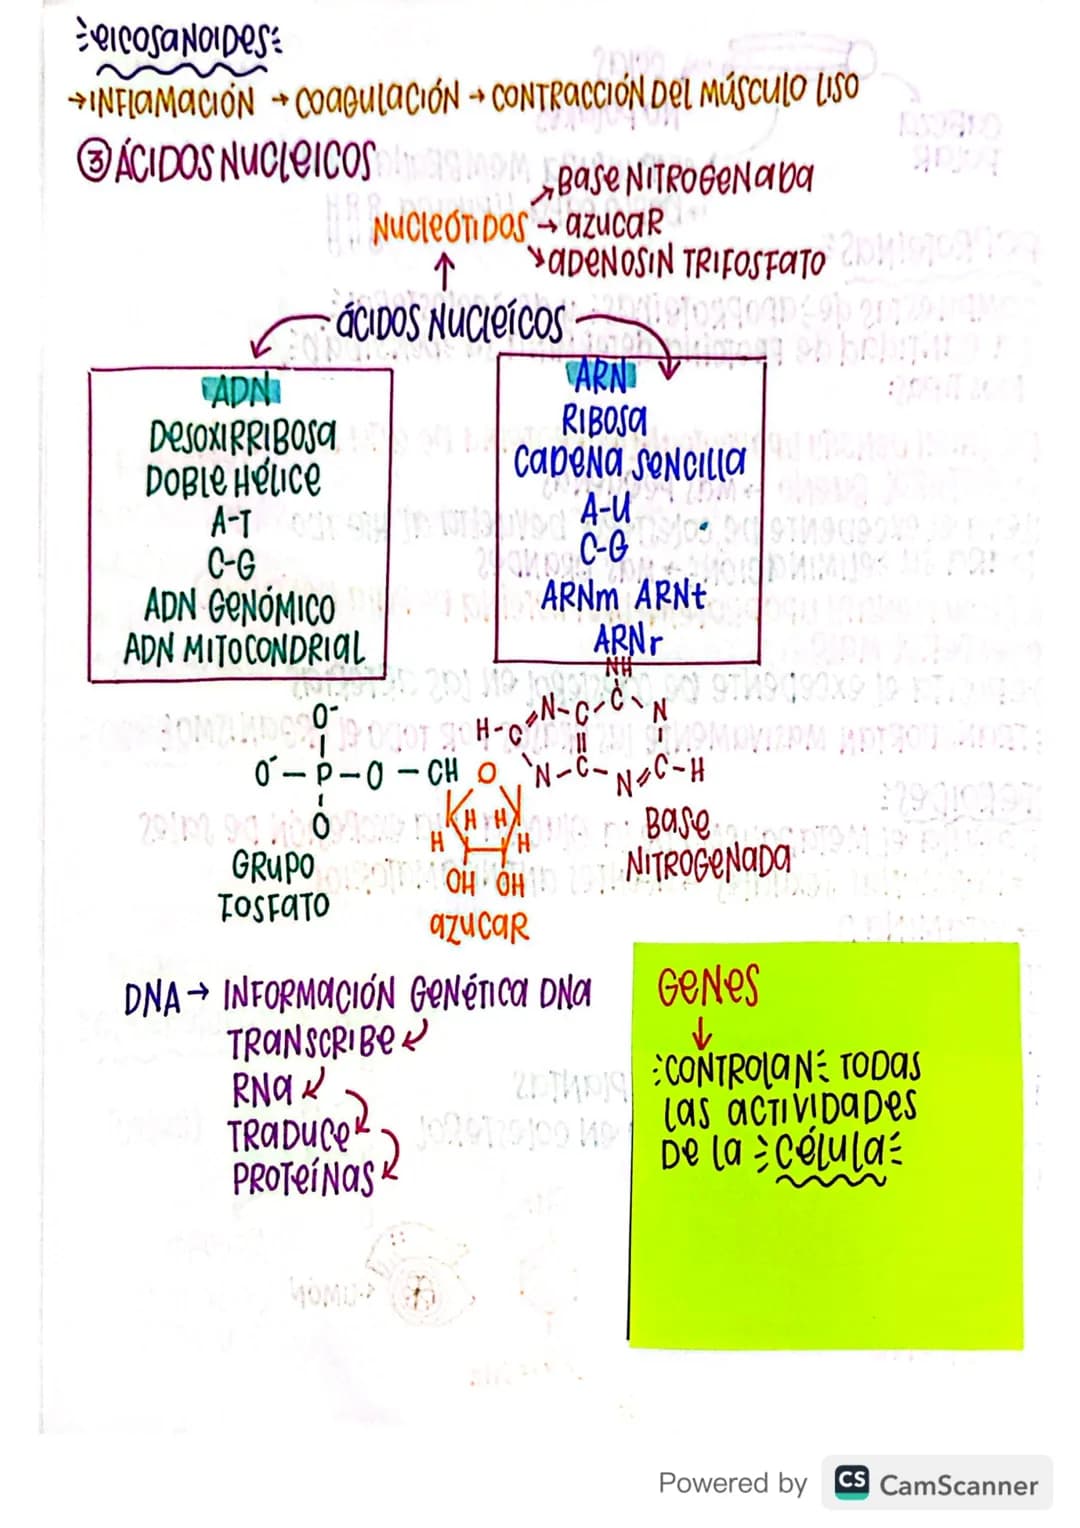 EICOSANOIDES
→INFLAMACIÓN →COAGULACIÓN →CONTRACCIÓN DEL MÚSCULO LISO
③ÁCIDOS NUCLEICOS
NUCLEÓTIDOS
→BASE NITROGENADA
→AZUCAR
→ADENOSIN TRIFOSFATO
ÁCIDOS NUCLEÍCOS
ADN
DESOXIRRIBOSA
DOBLE HÉLICE
A-T
C-G
ADN GENÓMICO
ADN MITOCONDRIAL
ARN
RIBOSA
CADENA SENCILLA
A-U
C-G
ARNm ARNt
ARNr
NH
N-C-C N
H-C
O-
O-—P—O—CH O
N-C-N=C-H
O
H H
H H
OH OH
GRUPO
FOSFATO
AZUCAR
BASE
NITROGENADA
DNA→ INFORMACIÓN GENÉTICA DNA
TRANSCRIBE
RNA
TRADUCE
PROTEÍNAS
GENES
↓
CONTROLAN TODAS
LAS ACTIVIDADES
DE LA CÉLULA
Powered by CS CamScanner